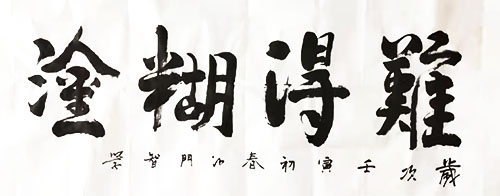 難得糊塗
歲次壬寅初春江門智